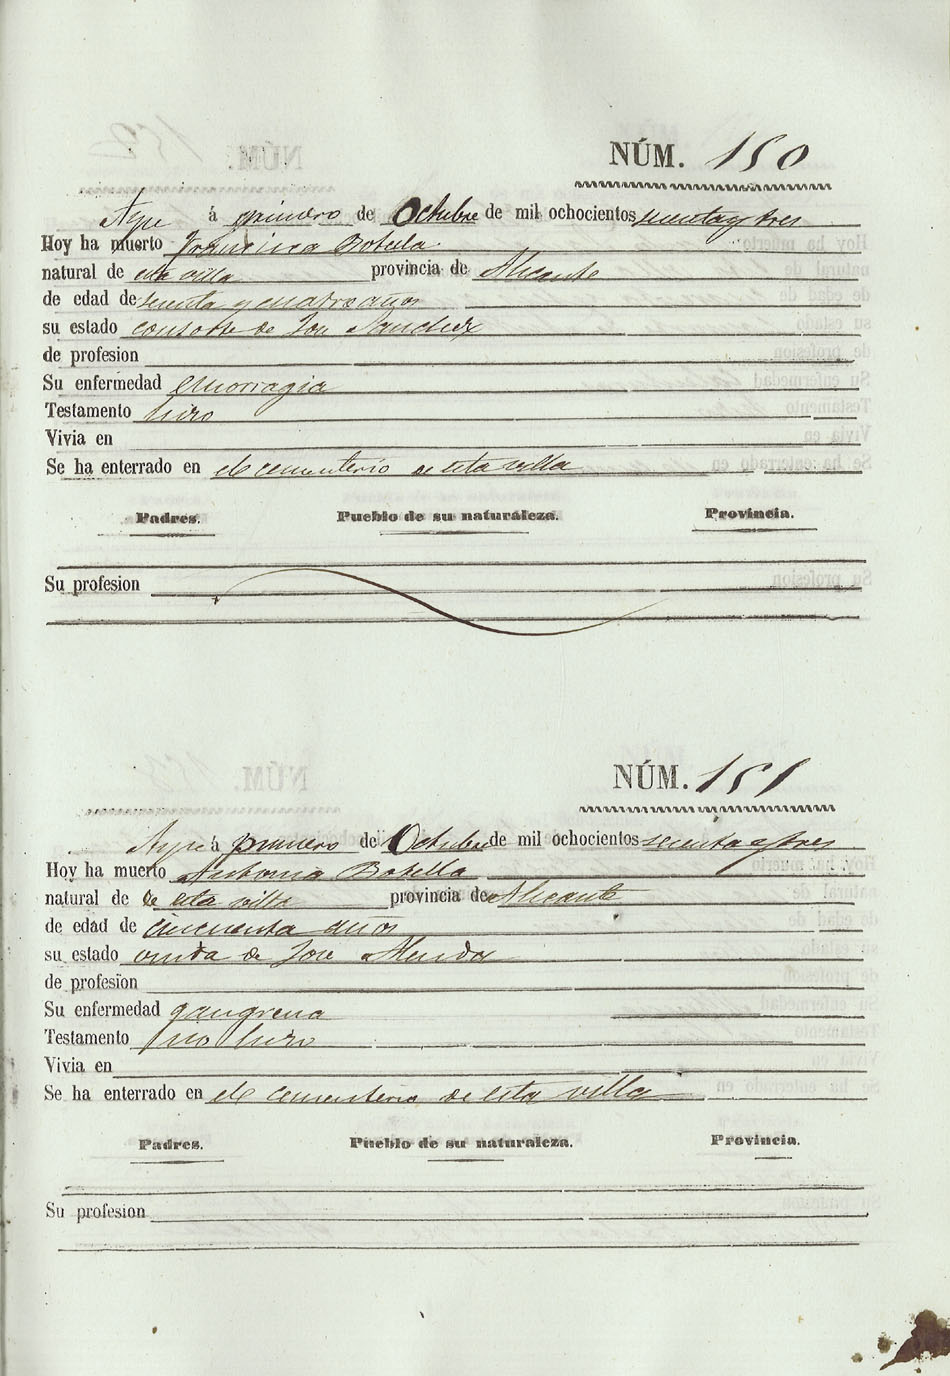 NÚM. 150
Aspe á primero de Octubre de mil ochocientos sesenta y tres
Hoy ha muerto Francisca Botella
natural de esta villa provincia de Alicante
de edad de sesenta y cuatro años
su estado consorte de Jose Sanchez
de profesion
Su enfermedad emorragia
Testamento hizo
Vivia en
Se ha enterrado en el cementerio de esta villa
Padres. Pueblo de su naturaleza. Provincia.
Su profesion
NÚM. 151
Aspe á primero de Octubre de mil ochocientos sesenta y tres
Hoy ha muerto Antonia Botella
natural de de esta villa provincia de Alicante
de edad de cincuenta años
su estado viuda de Jose
de profesion
Su enfermedad gangrena
Testamento no hizo
Vivia en
Se ha enterrado en el cementerio de esta villa
Padres. Pueblo de su naturaleza. Provincia.
Su profesion